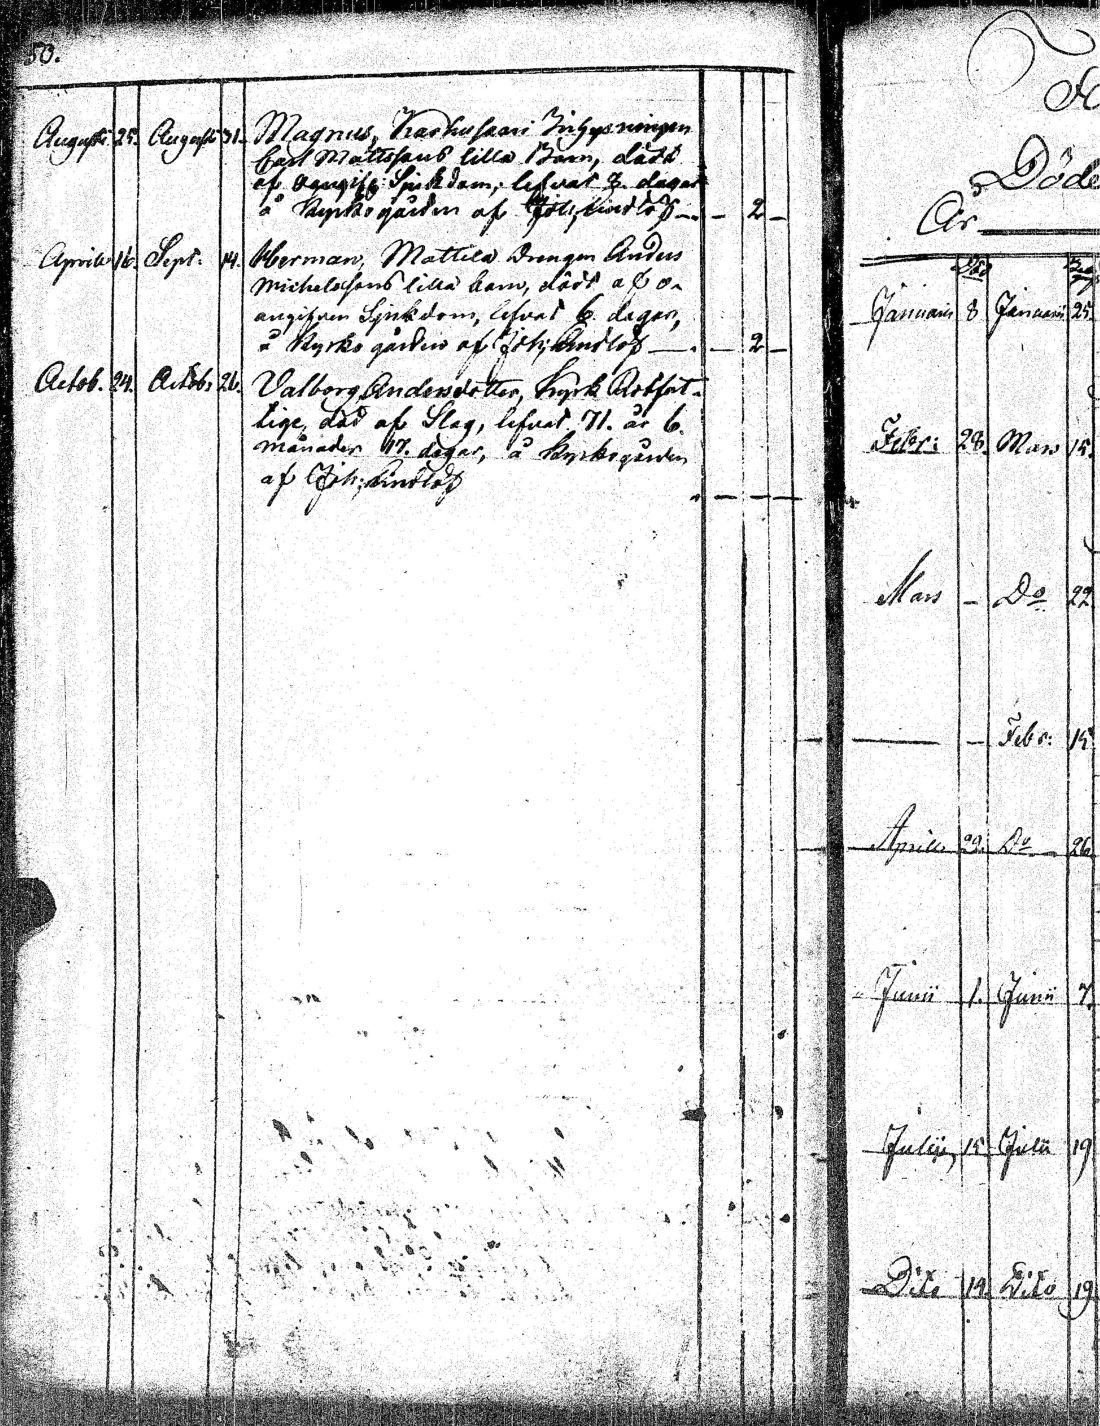 50.
Augusti 25. Augusti 31. Magnus, Inhysningen
Carl Mattssons lilla Barn, dödt
af oangifv: Sjukdom, lefvat 8. dagar
å Kyrkogården af Joh: Lindlöf — 2 —
Aprill 16. Sept: 14. Herman, Mattila Drengen Anders
Michelssons lilla barn, dödt af o-
angifven Sjukdom, lefvat 6. dagar,
å Kyrkogården af Joh: Lindlöf — 2 —
Octob. 24. Octob: 26. Valborg Andersdotter, Kyrk
död af Slag, lefvat 71. år 6.
månader 17. dagar, å Kyrkogården
af Joh: Lindlöf
Döde
År
Januarii 8 Januarii 25.
Febr: 28. Mars 15.
Mars — Do 22
— Febr: 15
Aprill 29. Do 26
Junii 1. Junii 7.
Julii 15 Julii 19
Dito 14. Dito 19